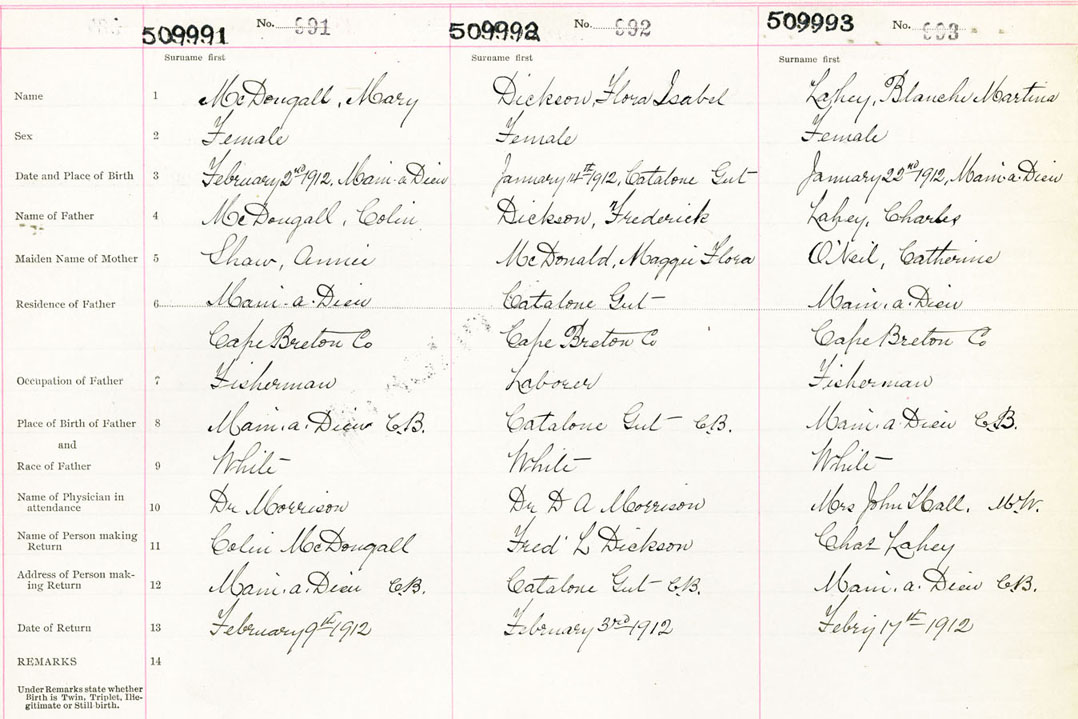 509991 No. 991 509992 No. 992 509993 No. 993
Surname first Surname first Surname first
Name 1 McDougall, Mary Dickson, Flora Isabel Lahey, Blanche Martina
Sex 2 Female Female Female
Date and Place of Birth 3 February 2nd 1912, Main-a-Dieu January 14th 1912, Catalone Gut January 22nd 1912, Main-a-Dieu
Name of Father 4 McDougall, Colin Dickson, Frederick Lahey, Charles
Maiden Name of Mother 5 Shaw, Annie McDonald, Maggie Flora O'Neil, Catherine
Residence of Father 6 Main-a-Dieu Catalone Gut Main-a-Dieu
Cape Breton Co Cape Breton Co Cape Breton Co
Occupation of Father 7 Fisherman Laborer Fisherman
Place of Birth of Father 8 Main-a-Dieu C.B. Catalone Gut C.B. Main-a-Dieu C.B.
and
Race of Father 9 White White White
Name of Physician in
attendance 10 Dr Morrison Dr D A Morrison Mrs John Hall, M.W.
Name of Person making
Return 11 Colin McDougall Fred L Dickson Chas Lahey
Address of Person mak-
ing Return 12 Main-a-Dieu C.B. Catalone Gut C.B. Main-a-Dieu C.B.
Date of Return 13 February 9th 1912 February 3rd 1912 Febry 17th 1912
REMARKS 14
Under Remarks state whether
Birth is Twin, Triplet, Ille-
gitimate or Still-birth.